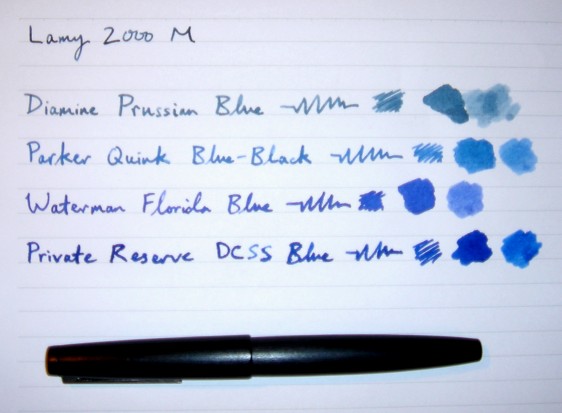 Lamy 2000 M
Diamine Prussian Blue
Parker Quink Blue-Black
Waterman Florida Blue
Private Reserve DCSS Blue